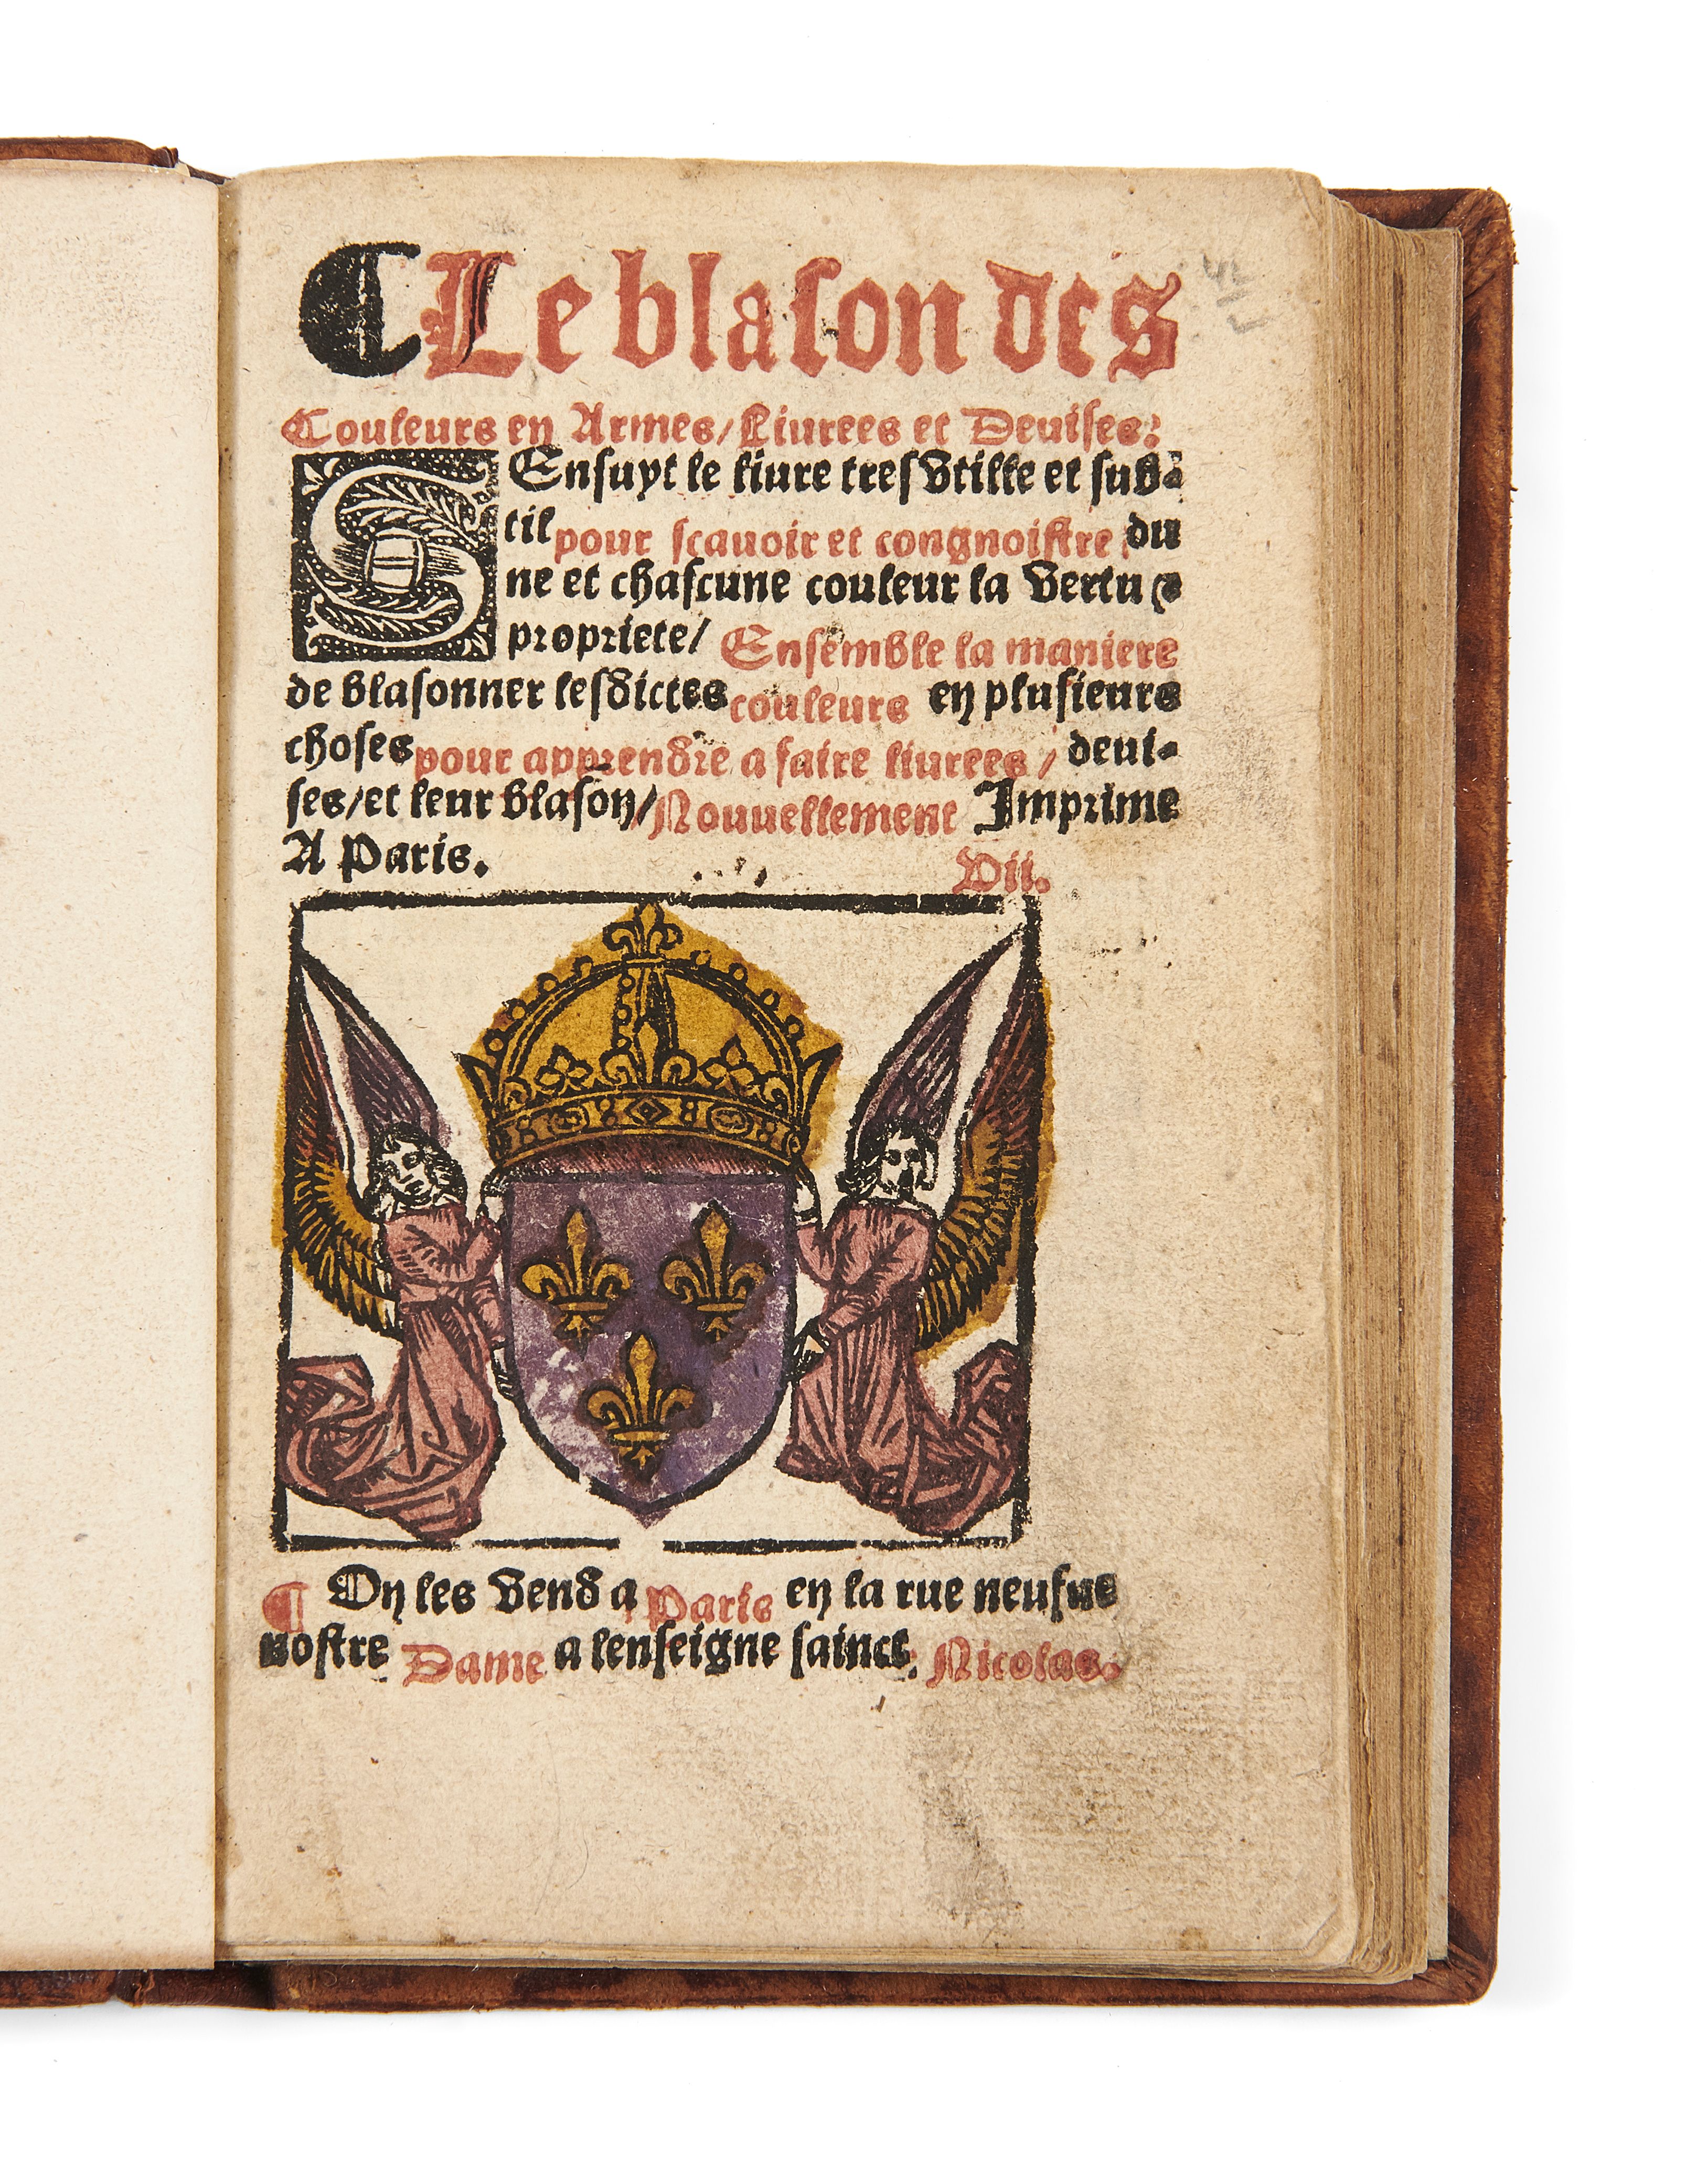 ¶ Le blaſon des
Couleurs en Armes/ Liurees et Deuiſes:
SEnſuyt le liure treſ vtille et ſub-
til pour ſcauoir et congnoiſtre du
ne et chaſcune couleur la vertu ⁊
propriete/ Enſemble la maniere
de blaſonner leſdictes couleurs en pluſieurs
choſes pour apprendre a faire liurees / deui-
ſes/et leur blaſon/ Nouuellement Imprime
A Paris. vii.
¶ On les vend a Paris en la rue neufue
noſtre Dame a lenſeigne ſainct Nicolas.